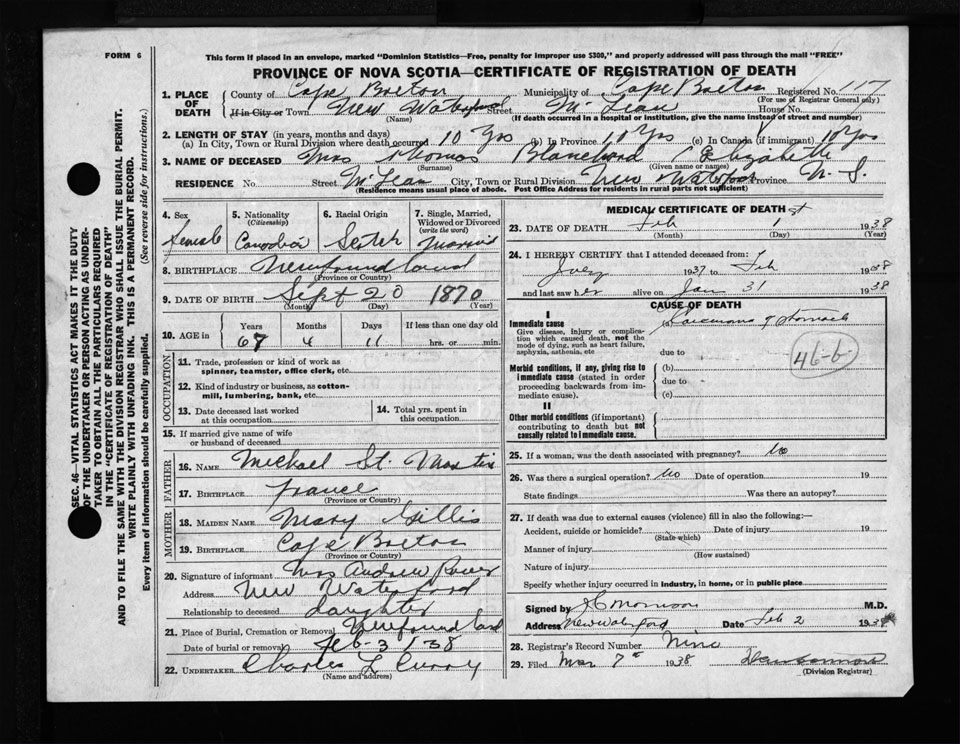 FORM 6
This form if placed in an envelope, marked "Dominion Statistics—Free, penalty for improper use $300," and properly addressed will pass through the mail "FREE"
PROVINCE OF NOVA SCOTIA—CERTIFICATE OF REGISTRATION OF DEATH
1. PLACE OF DEATH County of Cape Breton Municipality of Cape Breton Registered No. 117
(For use of Registrar General only)
If in City or Town New Waterford Street McLean House No.
(Name) (If death occurred in a hospital or institution, give the name instead of street and number)
2. LENGTH OF STAY (in years, months and days)
(a) In City, Town or Rural Division where death occurred 10 Yrs (b) In Province 10 Yrs (c) In Canada (if immigrant) 10 Yrs
3. NAME OF DECEASED Mrs Thomas Blanchard Elizabeth
(Surname) (Given name or names)
RESIDENCE No. Street McLean City, Town or Rural Division New Waterford Province N. S.
(Residence means usual place of abode. Post Office Address for residents in rural parts not sufficient)
4. Sex female
5. Nationality (Citizenship) Canadian
6. Racial Origin Scotch
7. Single, Married, Widowed or Divorced (write the word)
8. BIRTHPLACE Newfoundland
(Province or Country)
9. DATE OF BIRTH Sept 20 1870
(Month) (Day) (Year)
10. AGE in Years Months Days If less than one day old
67 4 11 hrs. or min.
OCCUPATION
11. Trade, profession or kind of work as spinner, teamster, office clerk, etc.
12. Kind of industry or business, as cotton-mill, lumbering, bank, etc.
13. Date deceased last worked at this occupation
14. Total yrs. spent in this occupation
15. If married give name of wife or husband of deceased
FATHER
16. NAME Michael St. Martin
17. BIRTHPLACE France
(Province or Country)
MOTHER
18. MAIDEN NAME Mary Gillis
19. BIRTHPLACE Cape Breton
(Province or Country)
20. Signature of informant Mrs Andrew Power
Address New Waterford
Relationship to deceased daughter
21. Place of Burial, Cremation or Removal Newfoundland
Date of burial or removal Feb-3/38
22. UNDERTAKER Charles L Curry
(Name and address)
MEDICAL CERTIFICATE OF DEATH
23. DATE OF DEATH Feb 1st 1938
(Month) (Day) (Year)
24. I HEREBY CERTIFY that I attended deceased from:
July 1937 to Feb 1938
and last saw her alive on Jan 31 1938
CAUSE OF DEATH
I
Immediate cause (a) Carcinoma of stomach
Give disease, injury or complication which caused death, not the mode of dying, such as heart failure, asphyxia, asthenia, etc
due to
46-b
Morbid conditions, if any, giving rise to immediate cause (stated in order proceeding backwards from immediate cause).
(b)
due to
(c)
II
Other morbid conditions (if important) contributing to death but not causally related to immediate cause.
25. If a woman, was the death associated with pregnancy? No
26. Was there a surgical operation? No Date of operation 19
State findings Was there an autopsy?
27. If death was due to external causes (violence) fill in also the following:—
Accident, suicide or homicide? Date of injury 19
(State which)
Manner of injury
(How sustained)
Nature of injury
Specify whether injury occurred in industry, in home, or in public place
Signed by Morrison M.D.
Address New Waterford Date Feb 2 193
28. Registrar's Record Number Nine
29. Filed Mar 7th 1938
(Division Registrar)
SEC. 46—VITAL STATISTICS ACT MAKES IT THE DUTY
OF THE UNDERTAKER OR PERSON ACTING AS UNDER-
TAKER TO OBTAIN ALL THE PARTICULARS REQUIRED
IN THE "CERTIFICATE OF REGISTRATION OF DEATH"
AND TO FILE THE SAME WITH THE DIVISION REGISTRAR WHO SHALL ISSUE THE BURIAL PERMIT.
WRITE PLAINLY WITH UNFADING INK. THIS IS A PERMANENT RECORD.
Every item of information should be carefully supplied. (See reverse side for instructions.)